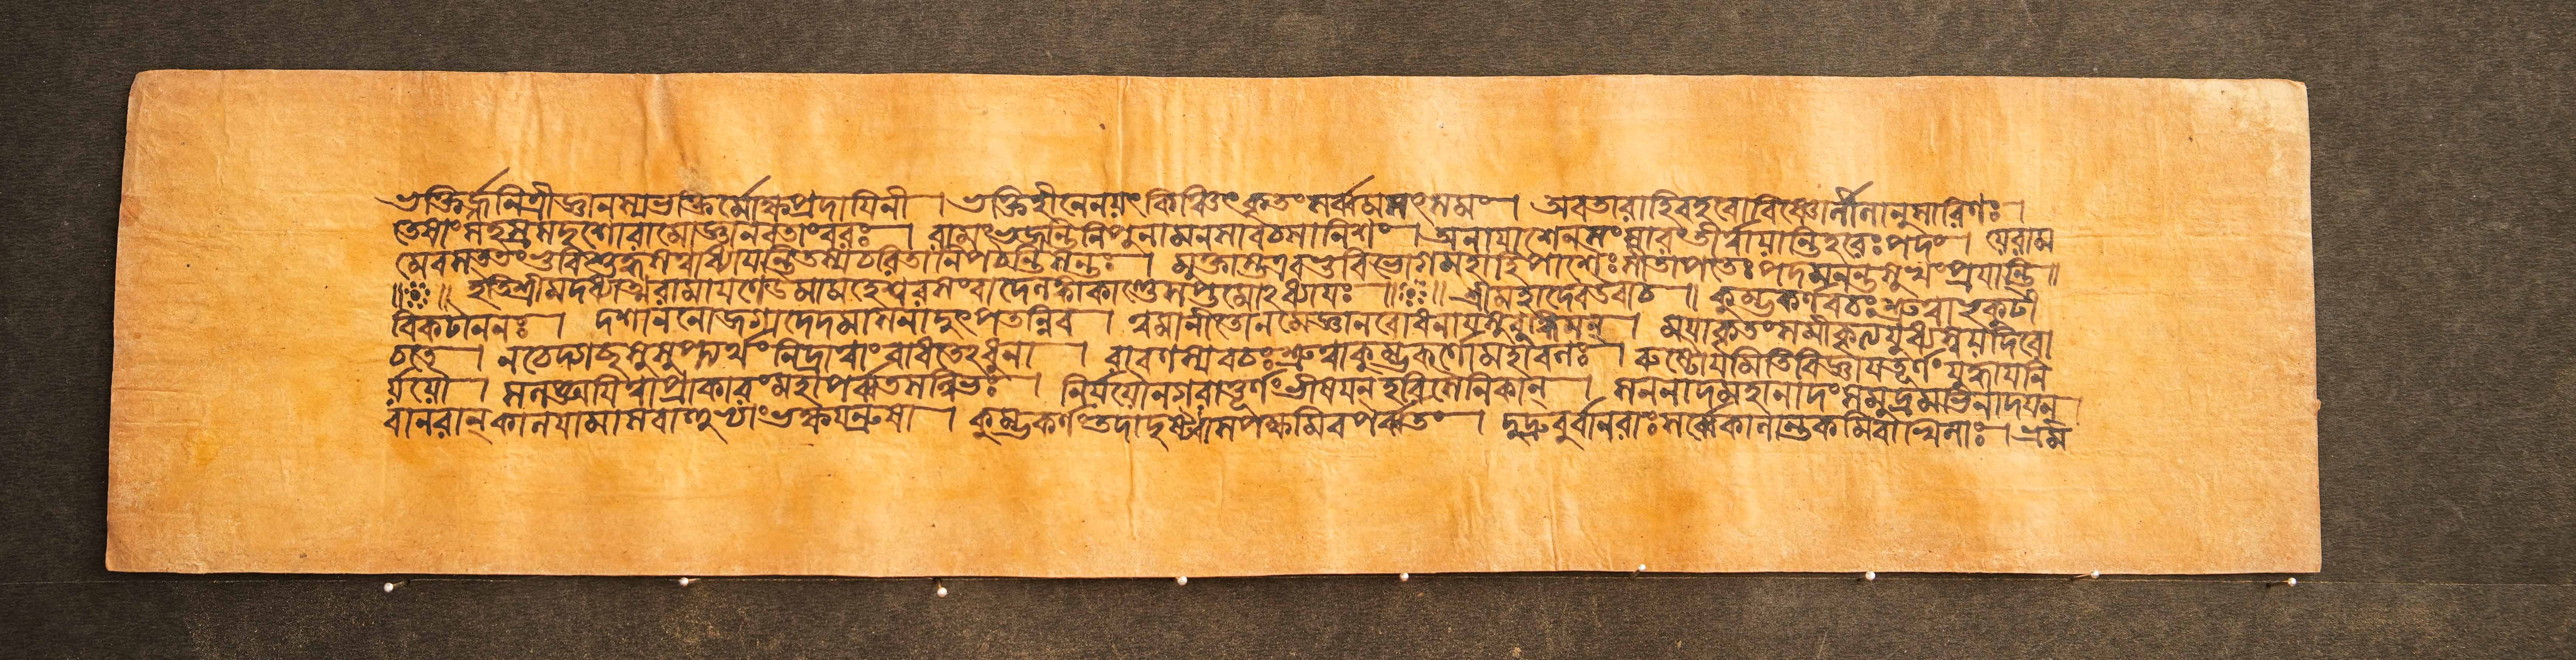 ভক্তির্জ্জনিত্রীজ্ঞানস্যভক্তির্ম্মোক্ষপ্রদায়িনী । ভক্তিহীনেনযৎকিঞ্চিৎকৃতংসর্ব্বমসৎসমং । অবতারাহিবহবোবিষ্ণোর্লীলানুসারিণঃ ।
তেষাংসহস্রসদৃশোরামোজ্ঞানবতাংবরঃ । রামংভজন্তিনিপুনামনসাবচসানিশং । অনায়াশেনসংসারংতীর্ত্বায়ান্তিহরেঃপদং । যেরাম
মেবসততংভুবিশুদ্ধসত্বাধ্যায়ন্তিতস্যচরিতানিপঠন্তিসন্তঃ । মুক্তাস্তএবভুবিভোগমহাহিপাশৈঃসীতাপতেঃপদমনন্তসুখংপ্রযান্তি ॥
॥ ॥ ইতিশ্রীমদধ্যাত্মরামায়ণেউমামহেশ্বরসংবাদেলঙ্কাকাণ্ডেসপ্তমোঽধ্যায়ঃ ॥ ॥ শ্রীমহাদেবউবাচ ॥ কুম্ভকর্ণবচঃশ্রুত্বাভ্রকুটী
বিকটাননঃ । দশাননোজগাদেদমাসনাদুৎপতন্নিব । ত্বমানীতোনমেজ্ঞানবোধনায়সুবুদ্ধিমন্ । ময়াকৃতংসমীকৃত্যযুধ্যস্বয়দিরো
চতে । নচেদ্গচ্ছসুসুপ্ত্যর্থংনিদ্রাত্বাংবাধতেঽধুনা । রাবণস্যবচঃশ্রুত্বাকুম্ভকর্ণোমহাবলঃ । রুষ্টোয়মিতিবিজ্ঞায়তূর্ণংযুদ্ধায়নি
র্য়য়ৌ । সলঙ্ঘয়িত্বাপ্রাকারংমহাপর্ব্বতসন্নিভঃ । নির্যয়ৌনগরাত্তূর্ণংভীষয়নহরিসৈনিকান্ । সননাদমহানাদংসমুদ্রমভিনাদয়ন্
বানরান্কালয়ামাসবাহুভ্যাংভক্ষয়ন্রুষা । কুম্ভকর্ণন্তদাদৃষ্ট্বাসপক্ষমিবপর্ব্বতং । দুদ্রুবুর্বানরাঃসর্ব্বেকালান্তকমিবাখিলাঃ । ভ্রম